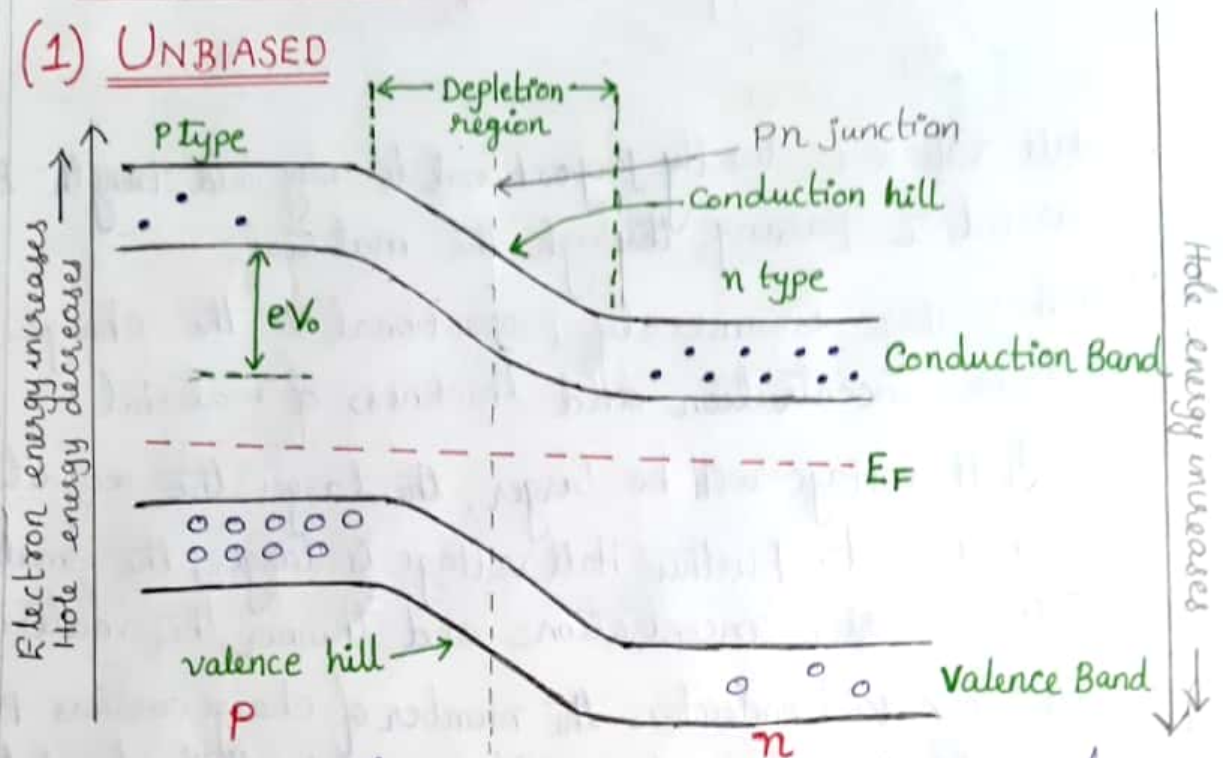 (1) UNBIASED
Depletion
region
P type
pn junction
conduction hill
n type
eV₀
Conduction Band
E_F
valence hill
Valence Band
P
n
Electron energy increases
Hole energy decreases
Hole energy increases